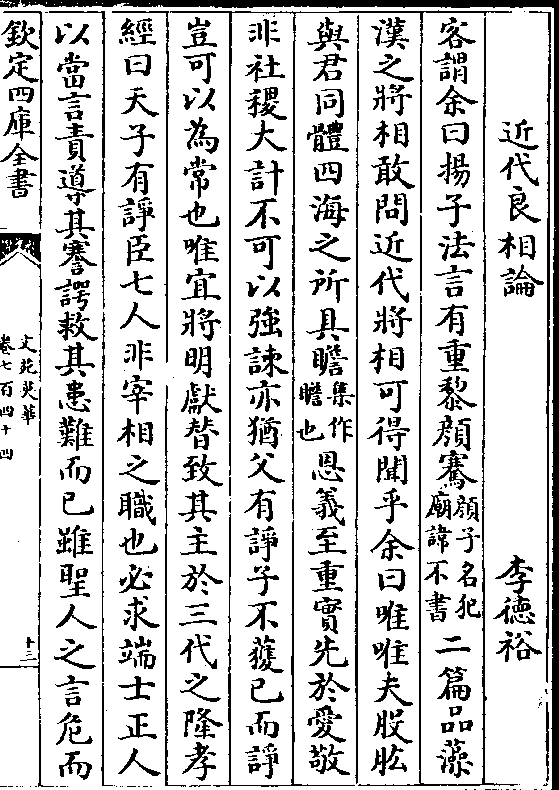 近代良相論　李德裕
客謂余曰揚子法言有重黎顔騫顔子名犯廟諱不書二篇品藻
漢之將相敢問近代將相可得聞乎余曰唯唯夫股肱
與君同體四海之所具瞻集作瞻也恩義至重實先於愛敬
非社稷大計不可以強諫亦猶父有諍子不獲已而諍
豈可以為常也唯宜將明獻替致其主於三代之隆孝
經曰天子有諍臣七人非宰相之職也必求端士正人
以當言責導其謇諤救其患難而已雖聖人之言危而
欽定四庫全書
文苑英華
卷七百四十四
十三